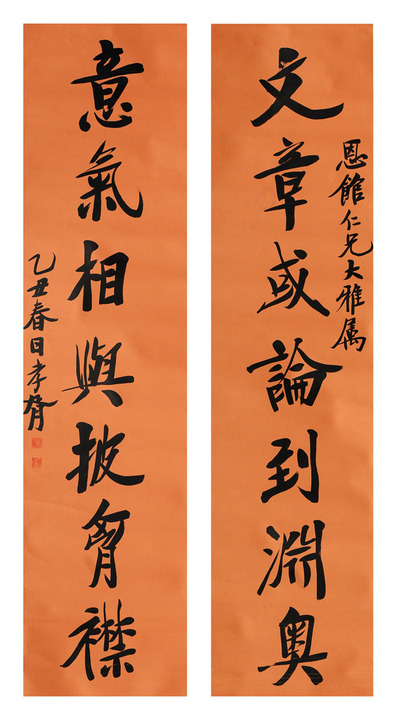 文章或論到淵奧
恩館仁兄大雅属
意氣相與披胷襟
乙丑春日孝胥